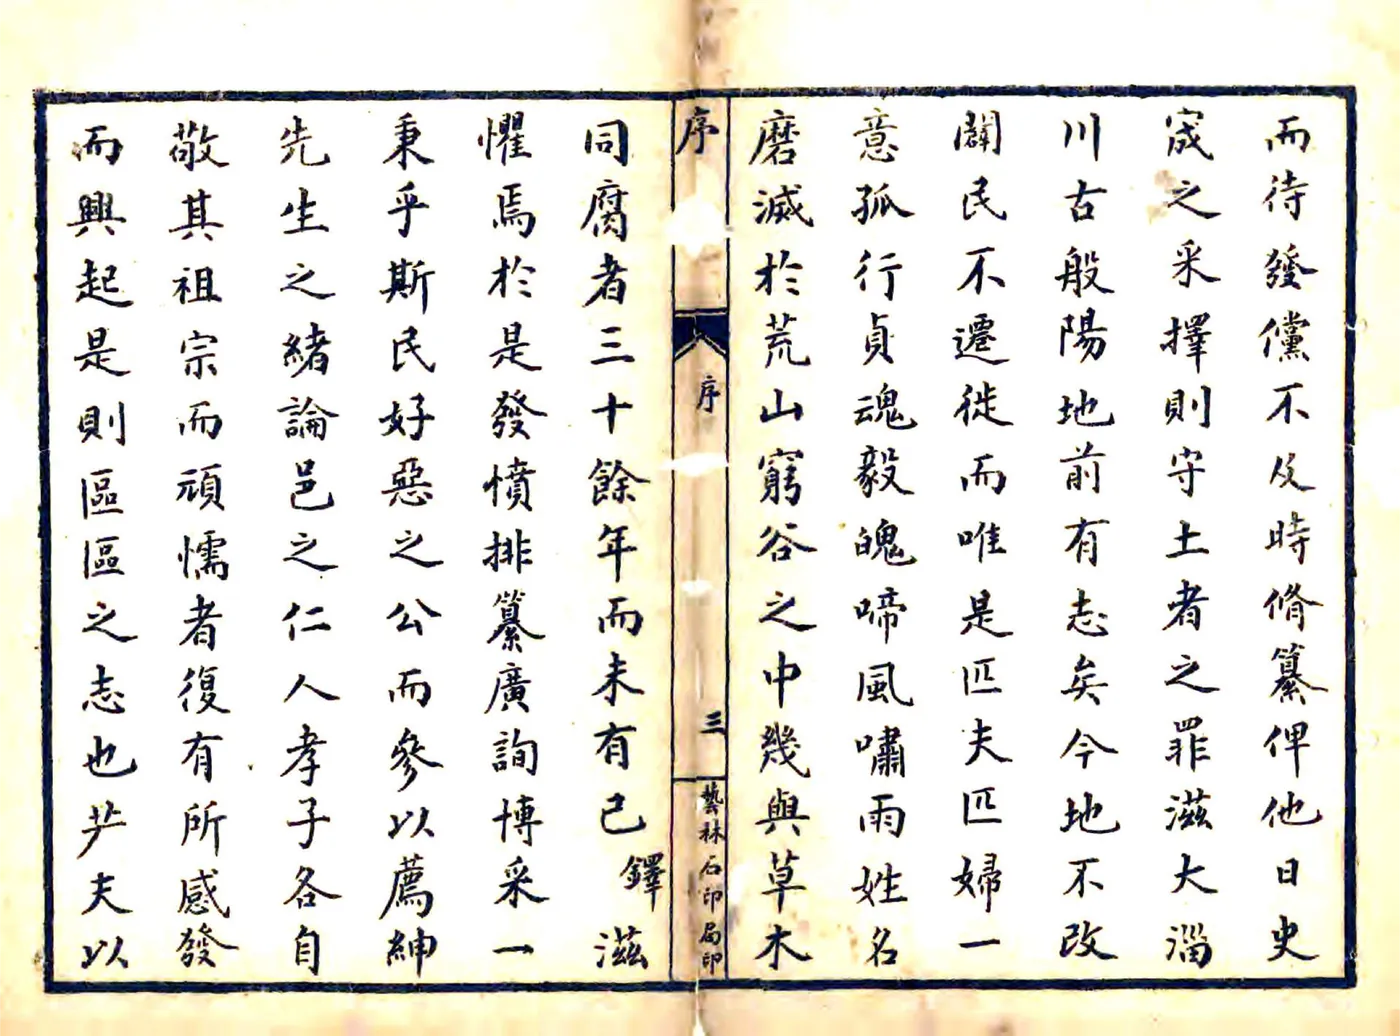 而待發儻不及時脩纂俾他日史
宬之采擇則守土者之罪滋大淄
川古般陽地前有志矣今地不改
闢民不遷徙而唯是匹夫匹婦一
意孤行貞魂毅魄啼風嘯雨姓名
磨滅於荒山窮谷之中幾與草木
序
序
三
藝林石印局印
同腐者三十餘年而未有已鐸滋
懼焉於是發憤排纂廣詢博采一
秉乎斯民好惡之公而參以薦紳
先生之緒論邑之仁人孝子各自
敬其祖宗而頑懦者復有所感發
而興起是則區區之志也若夫以